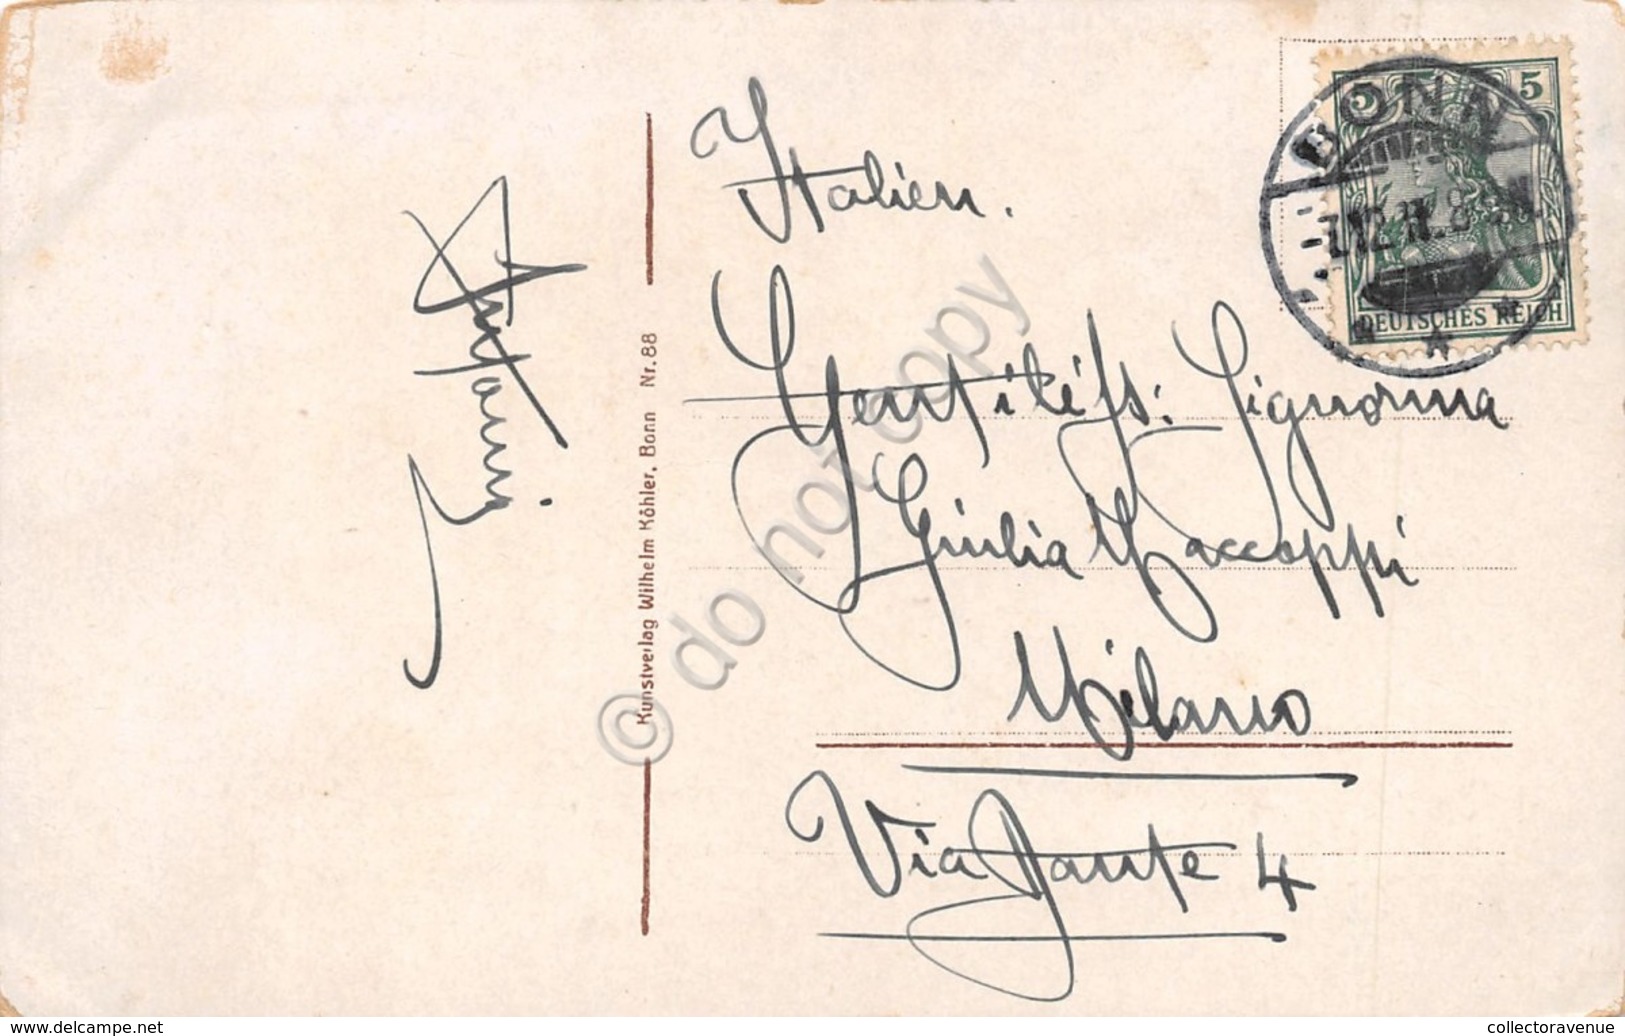 Italien.
Gentiliss: Signorina
Giulia Maccoppi
Milano
Via Dante 4
Antoni.
Kunstverlag Wilhelm Köhler, Bonn Nr. 88
5 5
BONN
12.11.8
DEUTSCHES REICH
© do not copy
www.delcampe.net
collectoravenue